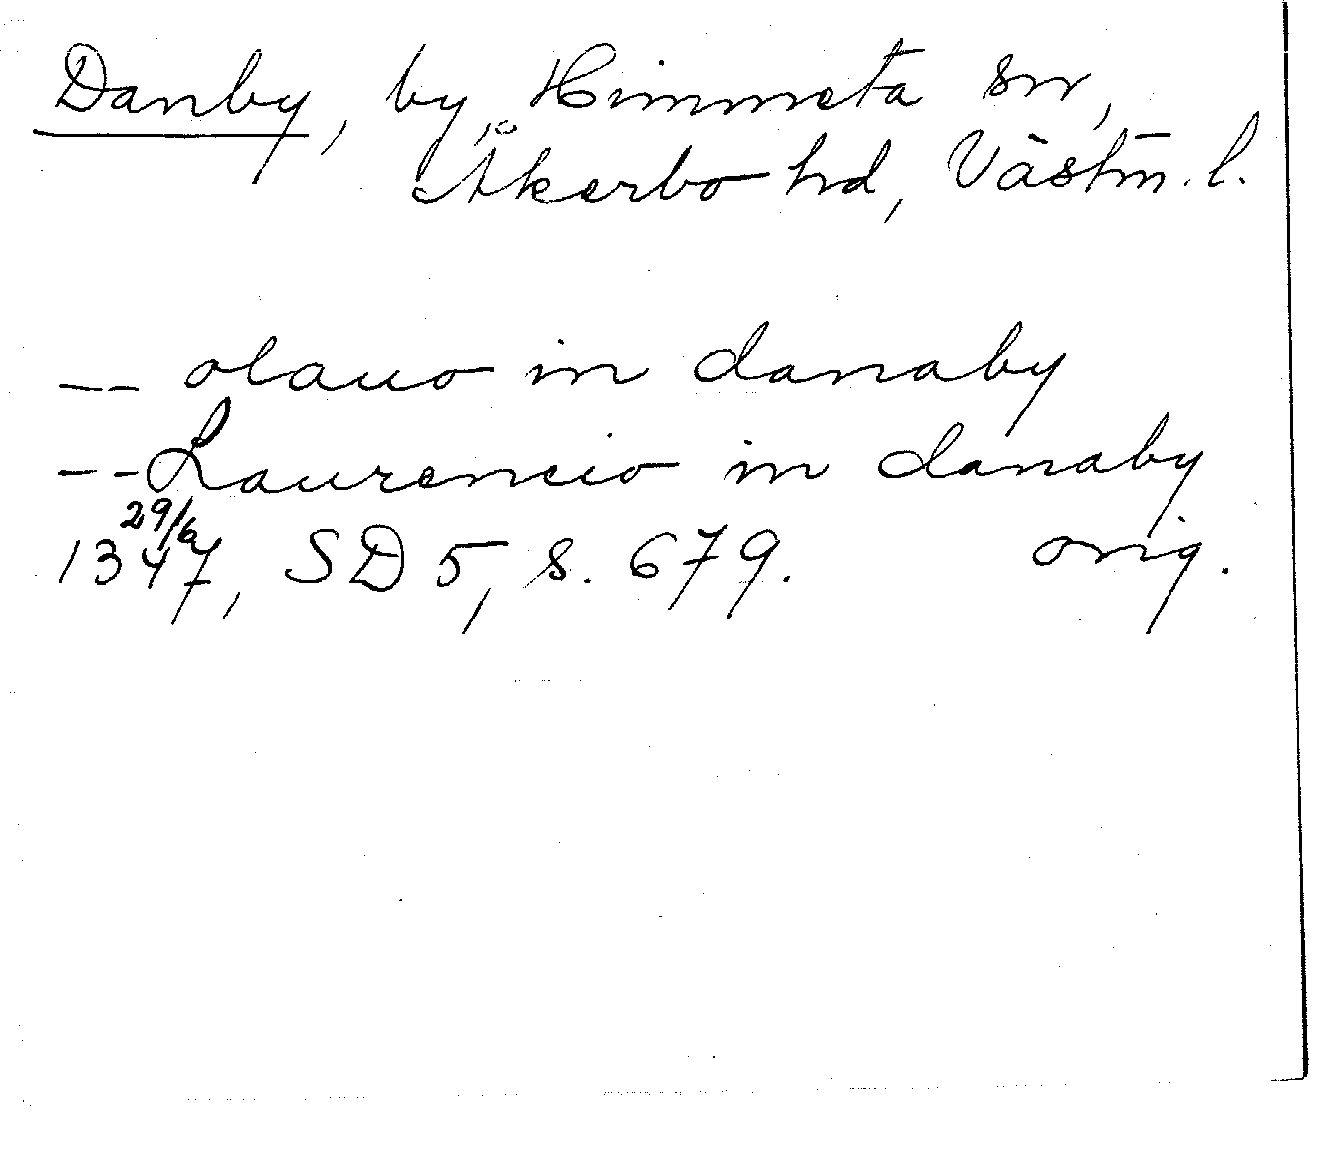 Danby, by, Himmeta sn,
Åkerbo hd, Västm. l.
-- olauo in danaby
-- Laurencio in danaby
1347 29/6, SD 5, s. 679. orig.